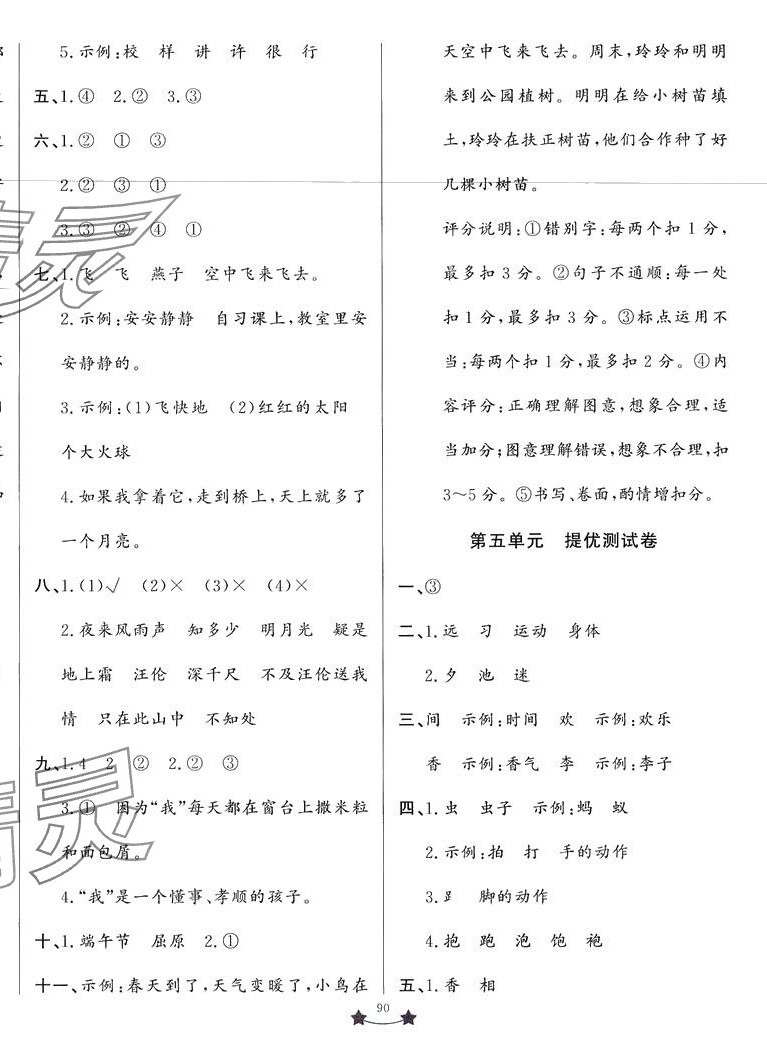 5.示例:校 样 讲 许 很 行
五、1.④ 2.② 3.③
六、1.② ① ③
2.② ③ ①
3.③ ② ④ ①
七、1.飞 飞 燕子 空中飞来飞去。
2.示例:安安静静 自习课上,教室里安
安静静的。
3.示例:(1)飞快地 (2)红红的太阳
个大火球
4.如果我拿着它,走到桥上,天上就多了
一个月亮。
八、1.(1)√ (2)× (3)× (4)×
2.夜来风雨声 知多少 明月光 疑是
地上霜 汪伦 深千尺 不及汪伦送我
情 只在此山中 不知处
九、1.4 2 ② 2.② ③
3.① 因为“我”每天都在窗台上撒米粒
和面包屑。
4.“我”是一个懂事、孝顺的孩子。
十、1.端午节 屈原 2.①
十一、示例:春天到了,天气变暖了,小鸟在
天空中飞来飞去。周末,玲玲和明明
来到公园植树。明明在给小树苗填
土,玲玲在扶正树苗,他们合作种了好
几棵小树苗。
评分说明:①错别字:每两个扣1分,
最多扣3分。②句子不通顺:每一处
扣1分,最多扣3分。③标点运用不
当:每两个扣1分,最多扣2分。④内
容评分:正确理解图意,想象合理,适
当加分;图意理解错误,想象不合理,扣
3～5分。⑤书写、卷面,酌情增扣分。
第五单元 提优测试卷
一、③
二、1.远 习 运动 身体
2.夕 池 迷
三、间 示例:时间 欢 示例:欢乐
香 示例:香气 李 示例:李子
四、1.虫 虫子 示例:蚂 蚁
2.示例:拍 打 手的动作
3.𧾷 脚的动作
4.抱 跑 泡 饱 袍
五、1.香 相
90
精灵
精灵